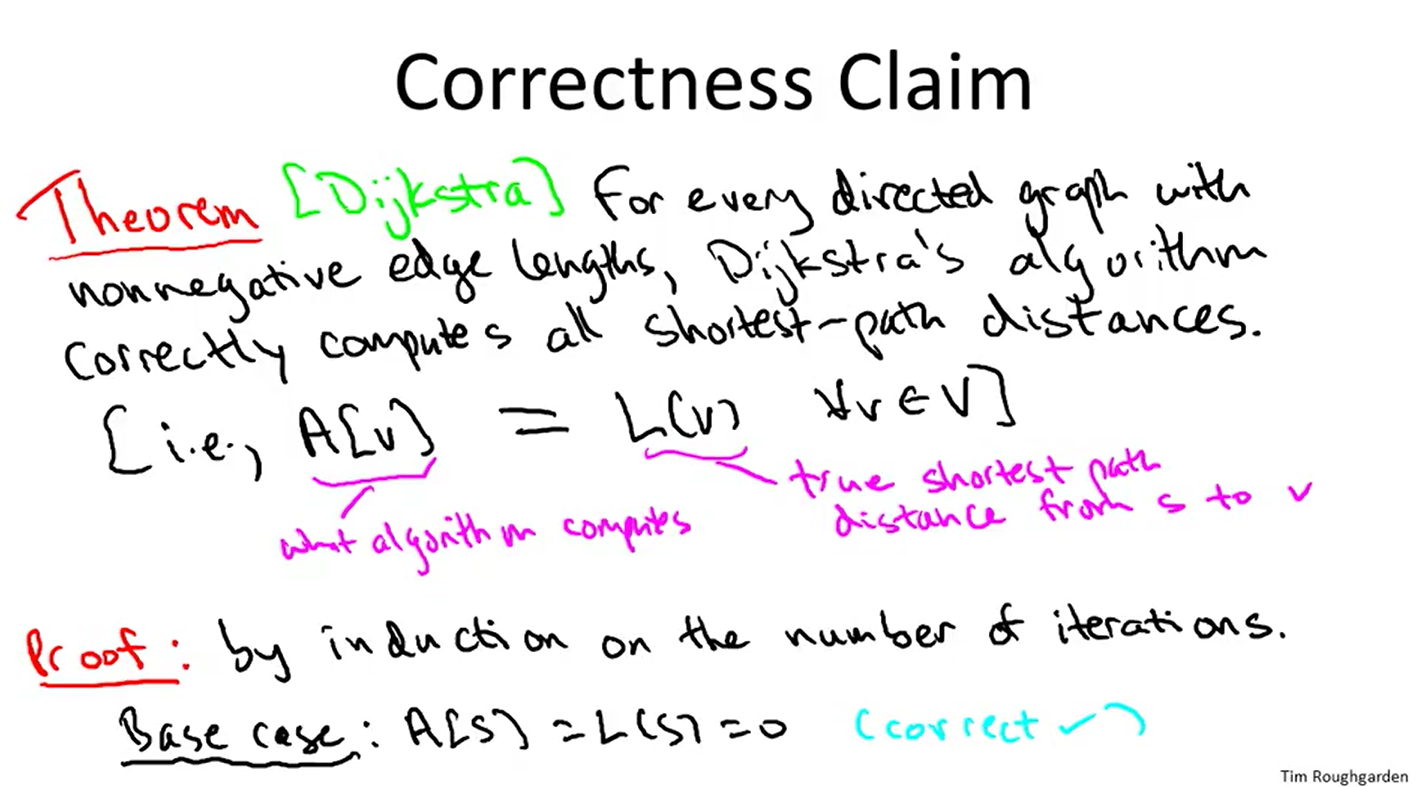 Correctness Claim
Theorem [Dijkstra] For every directed graph with
nonnegative edge lengths, Dijkstra's algorithm
correctly computes all shortest-path distances.
[i.e., A[v] = L(v) ∀v∈V]
what algorithm computes
true shortest path
distance from s to v
Proof: by induction on the number of iterations.
Base case: A[s] = L(s) = 0 (correct ✓)
Tim Roughgarden